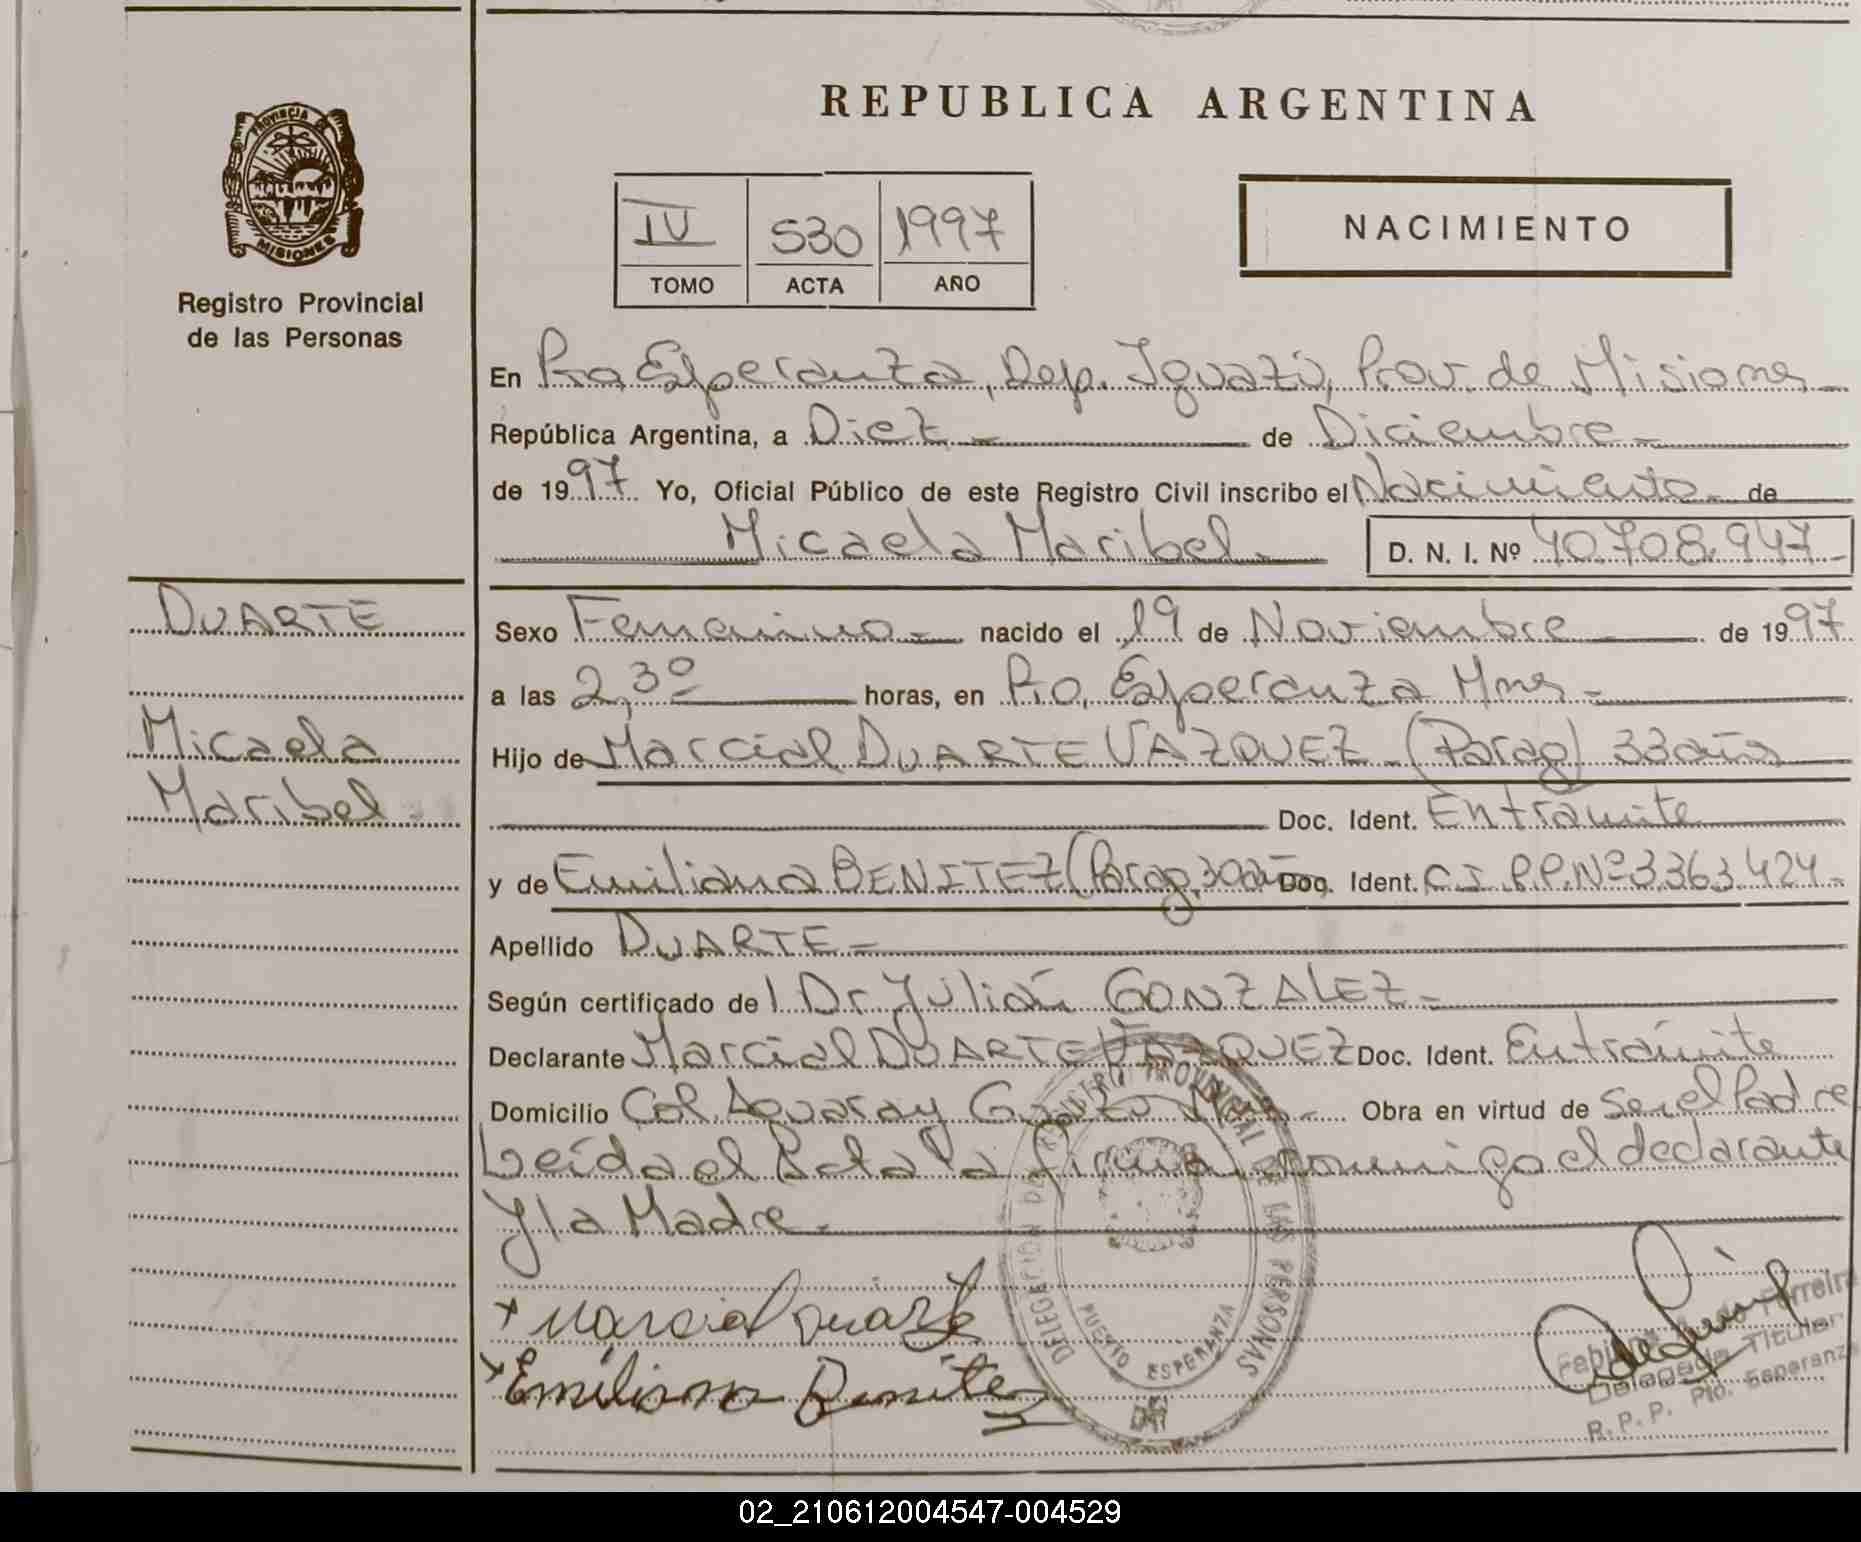 REPUBLICA ARGENTINA
PROVINCIA DE MISIONES
Registro Provincial
de las Personas
IV 530 1997
TOMO ACTA AÑO
NACIMIENTO
En Pto. Esperanza, Dep. Iguazú, Prov. de Misiones
República Argentina, a Diez de Diciembre
de 1997 Yo, Oficial Público de este Registro Civil inscribo el Nacimiento de
Micaela Maribel D. N. I. Nº 40.708.947
DUARTE
Micaela
Maribel
Sexo Femenino nacido el 19 de Noviembre de 1997
a las 2,30 horas, en Pto. Esperanza Mnes
Hijo de Marcial DUARTE VAZQUEZ (Parag) 33 años
Doc. Ident. En tramite
y de Emiliana BENITEZ (Parag, 30 años Doc. Ident. C.I.P.P. Nº 3.363.424
Apellido DUARTE
Según certificado del Dr. Julián GONZALEZ
Declarante Marcial DUARTE VAZQUEZ Doc. Ident. En trámite
Domicilio Col. Aguaray Guazú Mnes Obra en virtud de ser el Padre
Leída el Acta la firma conmigo el declarante
y la Madre.
Marcial Duarte
Emiliana Benitez
DELEGACION DEL REGISTRO PROVINCIAL DE LAS PERSONAS
PUERTO ESPERANZA
Ferreira
Delegado Titular
R.P.P. Pto. Esperanza
02_210612004547-004529